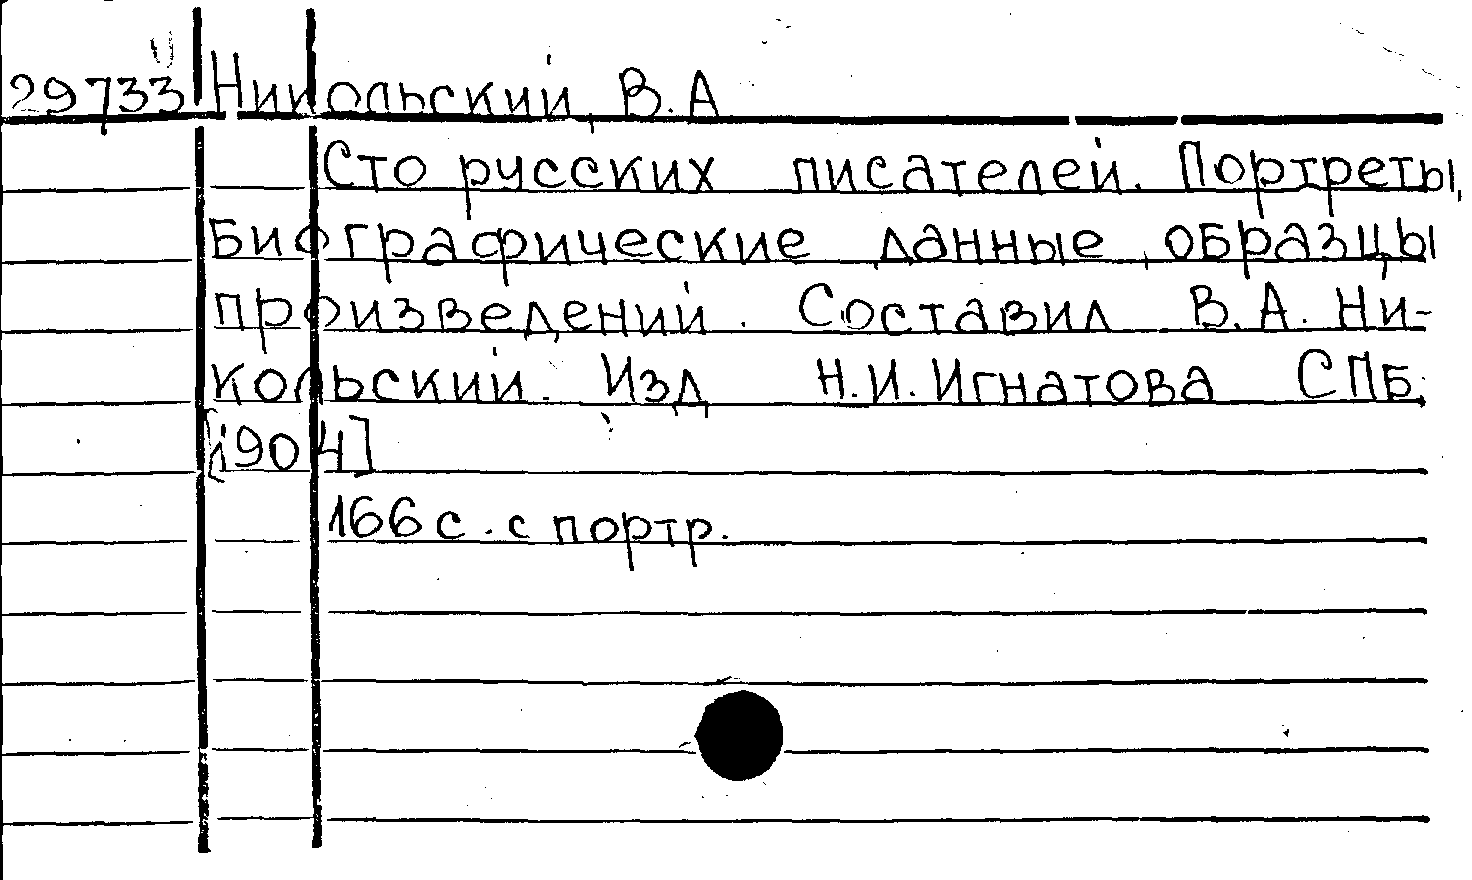 29733 Никольский, В.А
Сто русских писателей. Портреты,
Биографические данные, образцы
произведений. Составил В.А. Ни-
кольский. Изд Н.И. Игнатова СПБ.
[1904]
166 с. с портр.